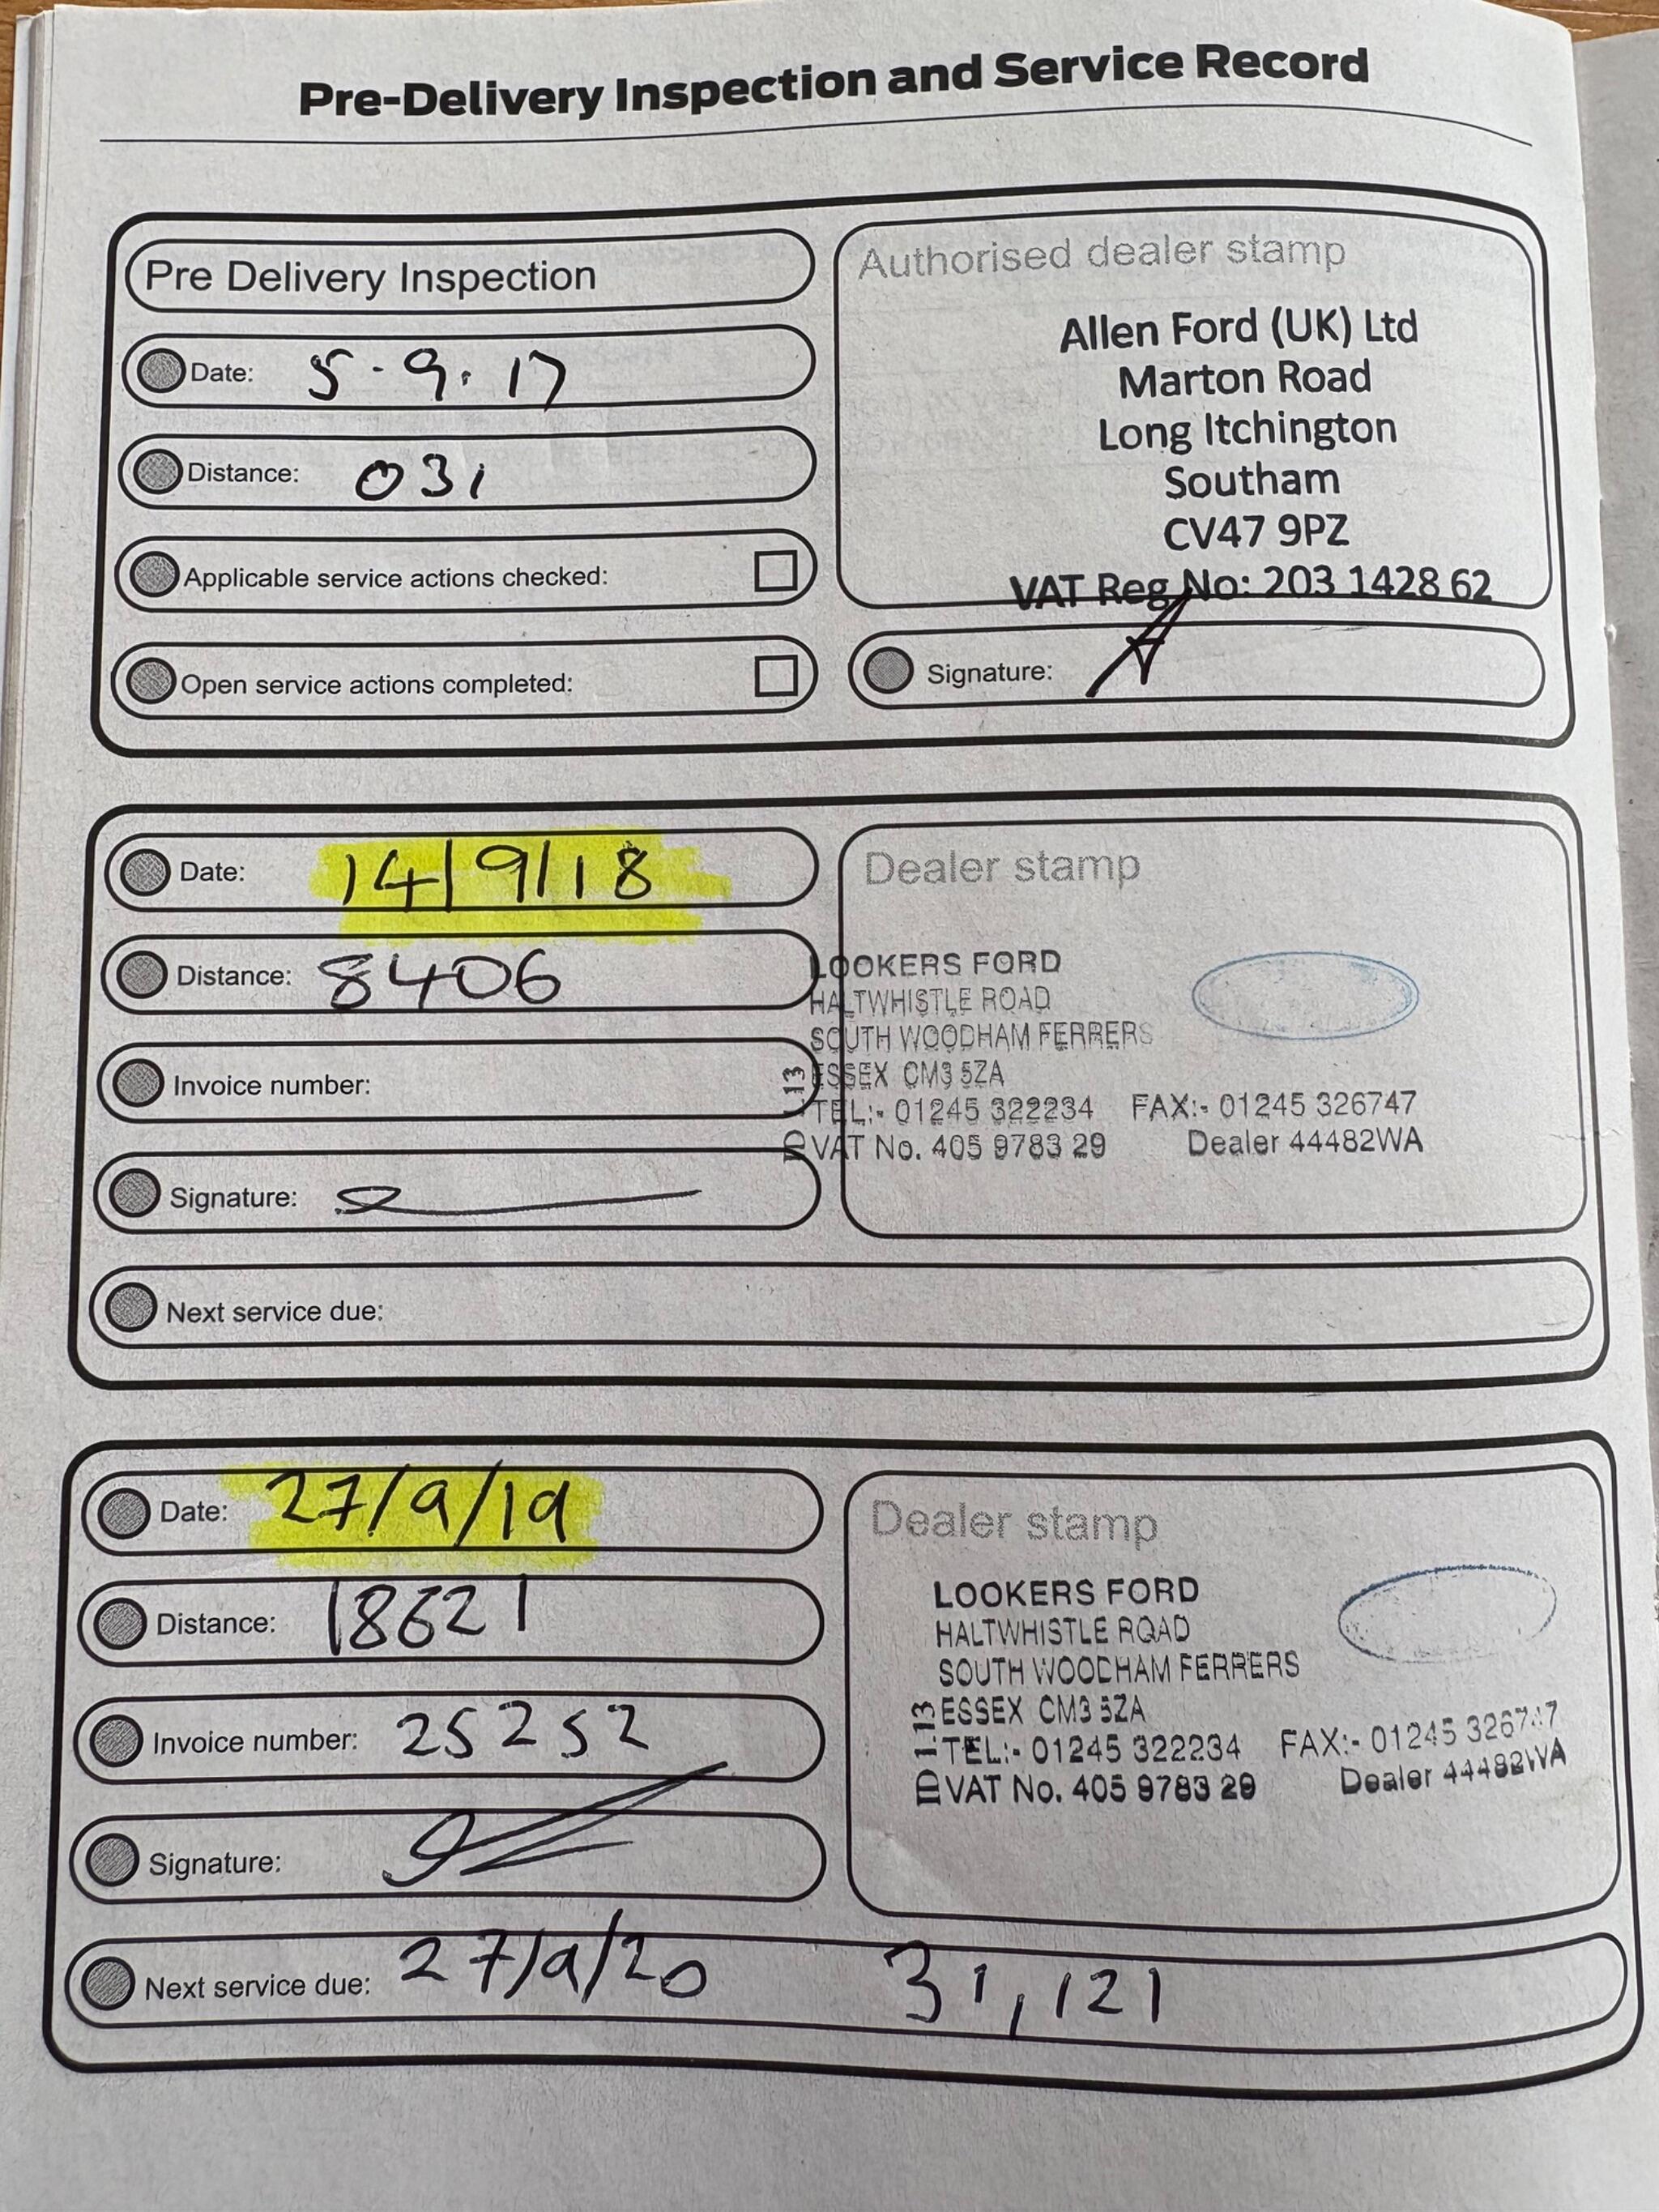 Pre-Delivery Inspection and Service Record
Pre Delivery Inspection
Date: 5.9.17
Distance: 031
Applicable service actions checked:
Open service actions completed:
Authorised dealer stamp
Allen Ford (UK) Ltd
Marton Road
Long Itchington
Southam
CV47 9PZ
VAT Reg No: 203 1428 62
Signature:
Date: 14/9/18
Distance: 8406
Invoice number:
Signature:
Dealer stamp
LOOKERS FORD
HALTWHISTLE ROAD
SOUTH WOODHAM FERRERS
ESSEX CM3 5ZA
TEL:- 01245 322234 FAX:- 01245 326747
VAT No. 405 9783 29 Dealer 44482WA
Next service due:
Date: 27/9/19
Distance: 18621
Invoice number: 25252
Signature:
Dealer stamp
LOOKERS FORD
HALTWHISTLE ROAD
SOUTH WOODHAM FERRERS
ESSEX CM3 5ZA
TEL:- 01245 322234 FAX:- 01245 326747
VAT No. 405 9783 29 Dealer 44482WA
Next service due: 27/9/20 31,121